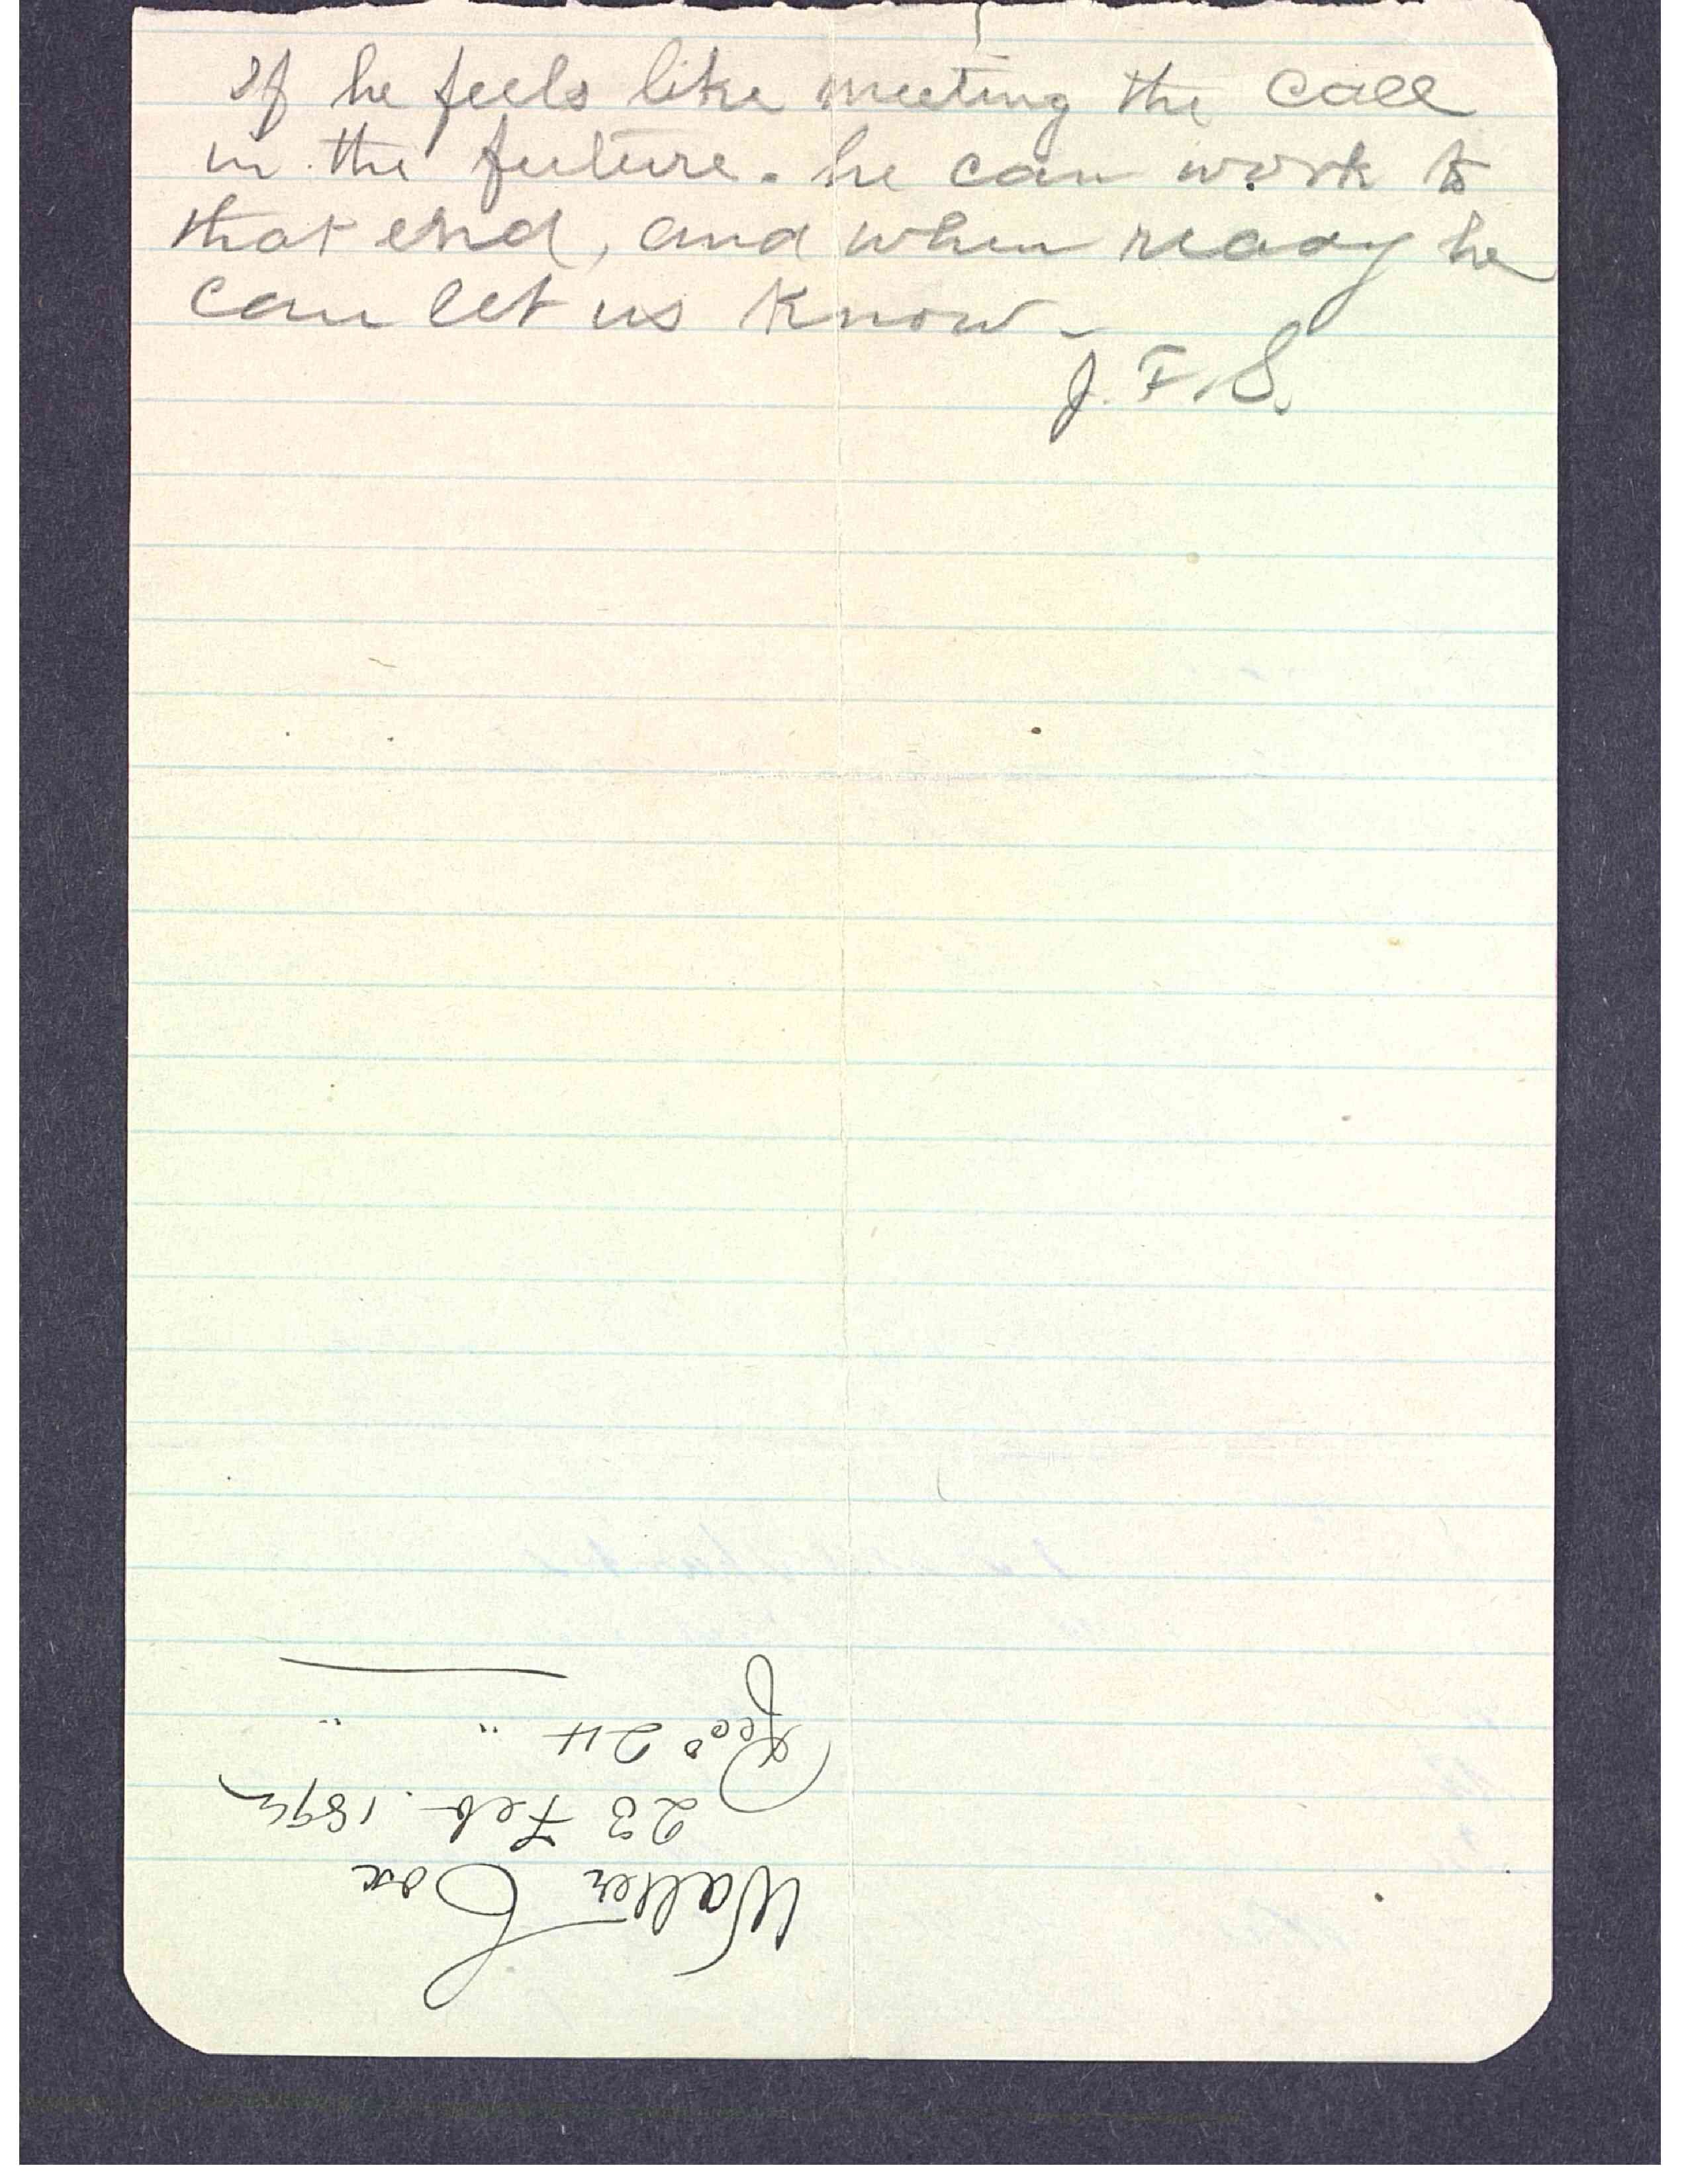 If he feels like meeting the call
in the future. he can work to
that end, and when ready he
can let us know -
J. F. S.
Walter Cox
23 Feb.
Recd 24 " "